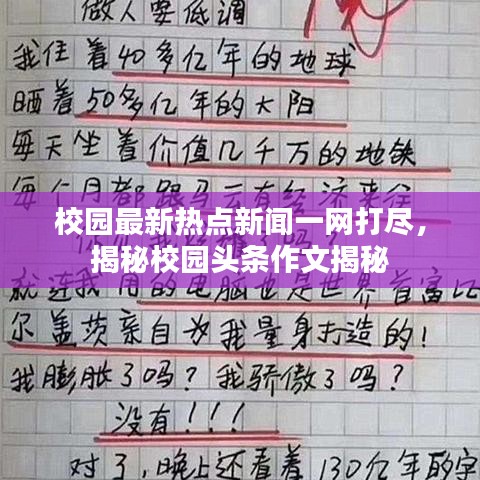 做人要低调
我住着40多亿年的地球
晒着50多亿年的太阳
每天坐着价值几千万的地铁
每个月都跟马云有经济来往
校园最新热点新闻一网打尽，
揭秘校园头条作文揭秘
就连我用的电脑也是世界首富比
尔盖茨亲自为我量身打造的！
我膨胀了吗？我骄傲了吗？
没有！！！
对了，晚上还看着130亿年的